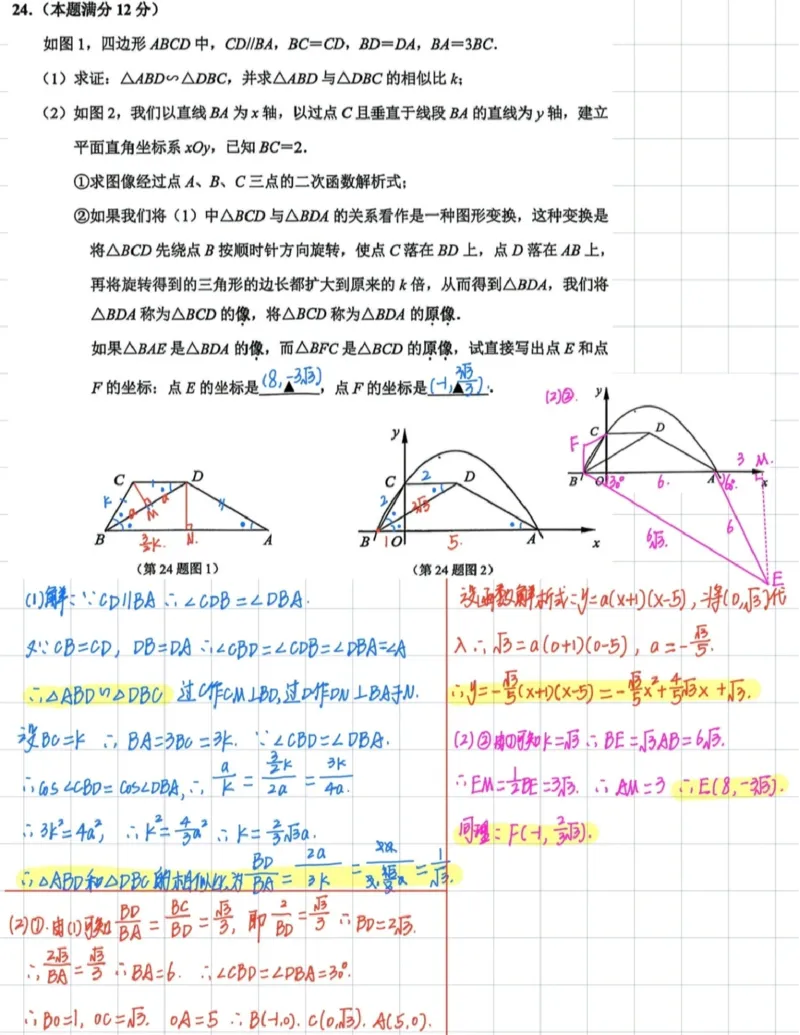 24.（本题满分 12 分）
如图 1，四边形 ABCD 中，CD//BA，BC＝CD，BD＝DA，BA＝3BC．
（1）求证：△ABD∽△DBC，并求△ABD 与△DBC 的相似比 k；
（2）如图 2，我们以直线 BA 为 x 轴，以过点 C 且垂直于线段 BA 的直线为 y 轴，建立
平面直角坐标系 xOy，已知 BC＝2．
①求图像经过点 A、B、C 三点的二次函数解析式；
②如果我们将（1）中△BCD 与△BDA 的关系看作是一种图形变换，这种变换是
将△BCD 先绕点 B 按顺时针方向旋转，使点 C 落在 BD 上，点 D 落在 AB 上，
再将旋转得到的三角形的边长都扩大到原来的 k 倍，从而得到△BDA，我们将
△BDA 称为△BCD 的像，将△BCD 称为△BDA 的原像．
如果△BAE 是△BDA 的像，而△BFC 是△BCD 的原像，试直接写出点 E 和点
F 的坐标：点 E 的坐标是 (8,-3√3) ▲，点 F 的坐标是 (-1, 2√3/3) ▲．
(2)②.
y
C D
F
3 M.
B O 30° 6. A 60° x
6√3. 6
E
C D
B 3/2K. N. A
（第 24 题图 1）
y
C 2 D
2 2√3
B 1 O 5. A x
（第 24 题图 2）
(1)解：∵CD∥BA ∴∠CDB=∠DBA.
又∵CB=CD, DB=DA ∴∠CBD=∠CDB=∠DBA=∠A
∴△ABD∽△DBC 过C作CM⊥BD,过D作DN⊥BA于N.
设BC=k ∴BA=3BC=3k. ∵∠CBD=∠DBA.
∴cos∠CBD=cos∠DBA, ∴ a/k = (3/2k)/2a = 3k/4a.
∴3k²=4a², ∴k²=4/3a² ∴k=2/3√3a.
∴△ABD和△DBC的相似比为 BD/BA = 2a/3k = = 1/√3.
(2)①.由(1)可知 BD/BA = BC/BD = √3/3, 即 2/BD = √3/3 ∴BD=2√3.
∴ 2√3/BA = √3/3 ∴BA=6. ∴∠CBD=∠DBA=30°.
∴BO=1, OC=√3. OA=5 ∴B(-1,0). C(0,√3). A(5,0).
设函数解析式：y=a(x+1)(x-5), 将(0,√3)代
入∴√3=a(0+1)(0-5), a=-√3/5.
∴y=-√3/5(x+1)(x-5)=-√3/5x²+4/5√3x+√3.
(2)②由①可知k=√3 ∴BE=√3AB=6√3.
∴EM=1/2BE=3√3. ∴AM=3 ∴E(8,-3√3).
同理：F(-1, 2/3√3).